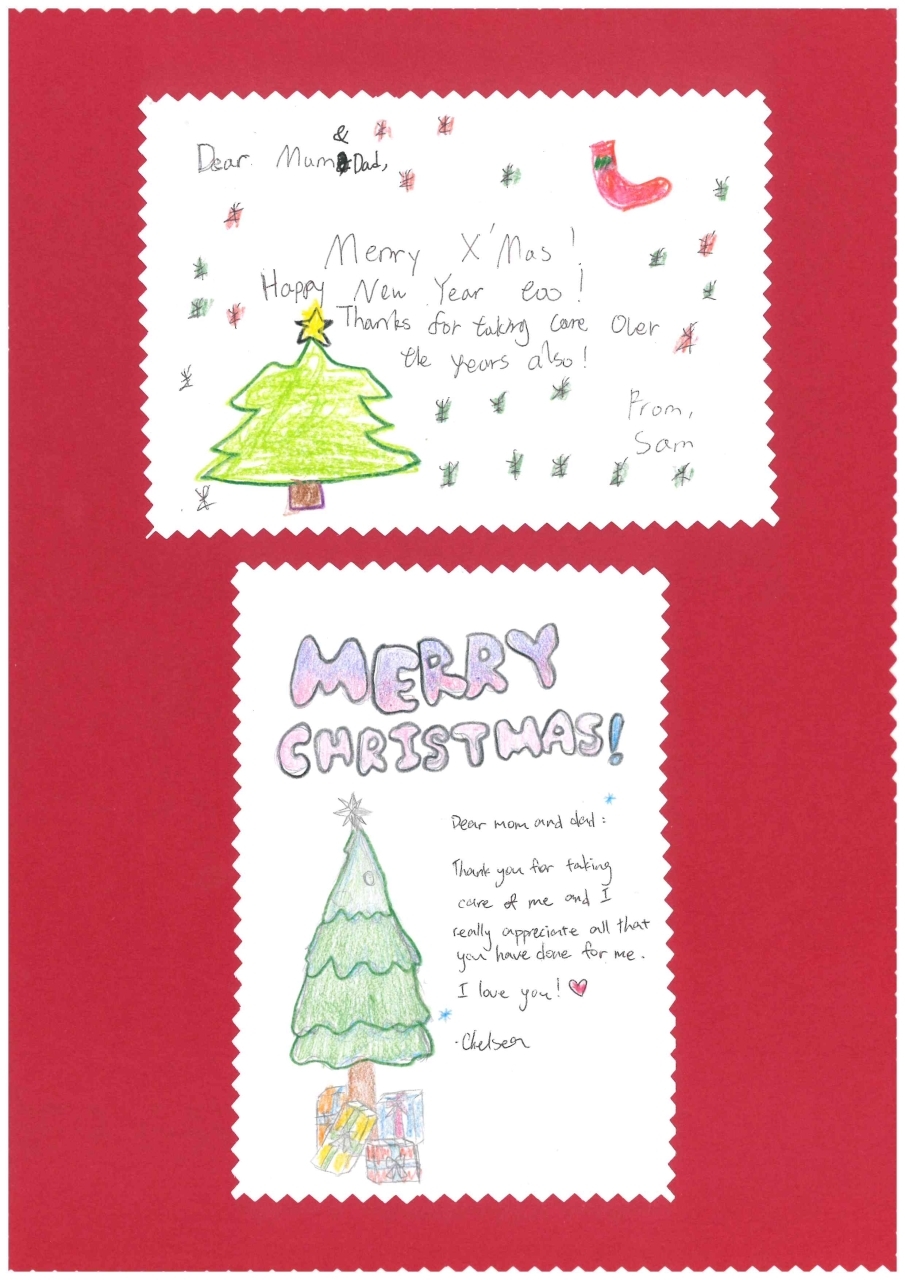 Dear Mum & Dad,
Merry X'Mas!
Happy New Year too!
Thanks for taking care Over
the years also!
From,
Sam
MERRY
CHRISTMAS!
Dear mom and dad:
Thank you for taking
care of me and I
really appreciate all that
you have done for me.
I love you!
·Chelsea